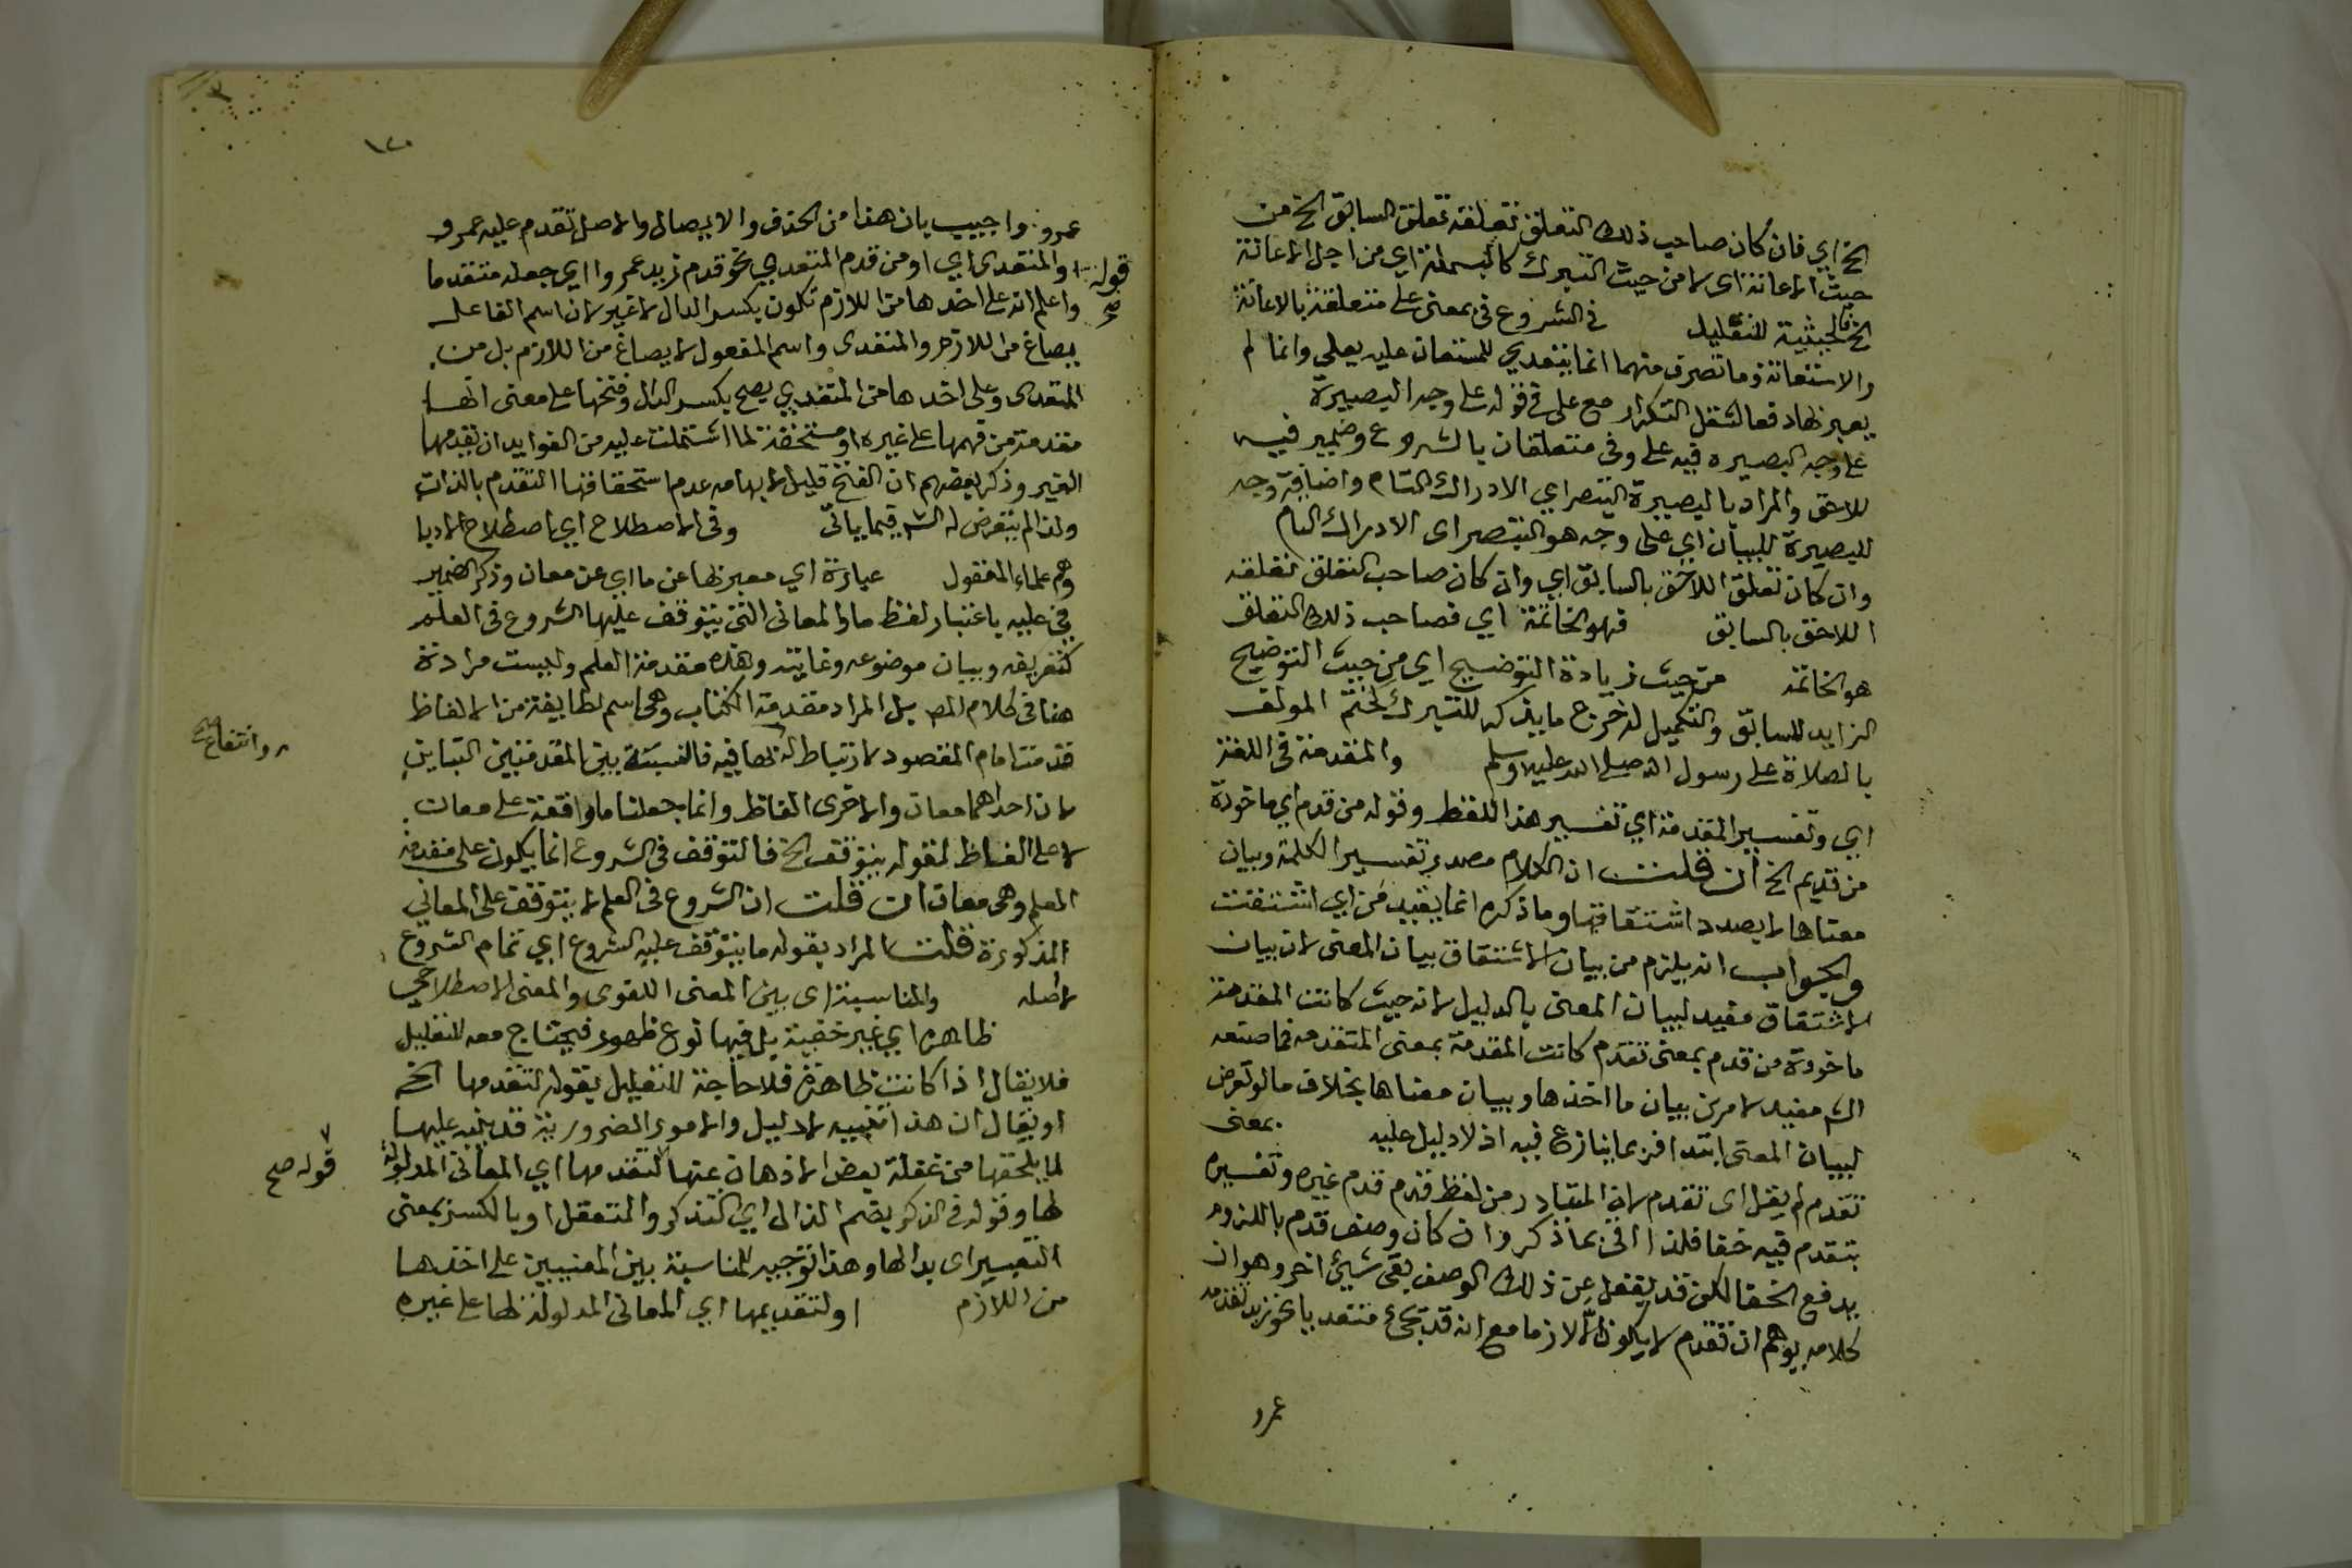 الخ اي فان كان صاحب ذلك التعلق تعلقه تعلق السابق الخ من
حيث الاعانة اي لا من حيث التبرك كالبسملة اي من اجل الاعانة
الخ فالحيثية للتعليل في الشروع في بمعنى على متعلقة بالاعانة
والاستعانة وما تصرف منهما انما يتعدي للمستعان عليه بعلى وانما لم
يعبر بها دفعا لثقل التكرار مع على في قوله على وجه البصيرة
على وجه البصيره فيه على وفي متعلقان بالشروع وضمير فيه
للاحق والمراد بالبصيرة التبصر اي الادراك التام واضافة وجه
للبصيرة للبيان اي على وجه هو التبصر اي الادراك التام
وان كان تعلق اللاحق بالسابق اي وان كان صاحب التعلق تعلقه
اللاحق بالسابق فهو الخاتمة اي فصاحب ذلك التعلق
هو الخاتمه من حيث زيادة التوضيح اي من حيث التوضيح
الزايد للسابق والتكميل له خرج ما يذكر للتبرك لختم المولف
بالصلاة على رسول الله صلى الله عليه وسلم والمقدمة في اللغة
اي وتفسير المقدمة اي تفسير هذا اللفظ وقوله من قدم اي ماخوذة
من قديم الخ ان قلت ان الكلام مصدر بتفسير الكلمة وبيان
معناها لا بصدد اشتقاقها وما ذكره انما يفيد من اي اشتقت
والجواب انه يلزم من بيان الاشتقاق بيان المعنى لان بيان
الاشتقاق مفيد لبيان المعنى بالدليل لانه حيث كانت المقدمة
ماخوذة من قدم بمعنى تقدم كانت المقدمة بمعنى المتقدمه فما صنعه
الش مفيد لامرين بيان ما اخذها وبيان معناها بخلاف ما لو تعرض
لبيان المعنى ابتداء فربما ينازع فيه اذ لا دليل عليه بمعنى
تقدم لم يقل اي تقدم لان المتبادر من لفظ قدم قدم غيره وتفسيره
بتقدم فيه خفا فلذا اتى بما ذكر وان كان وصف قدم باللزوم
يدفع الخفا لكن قد يغفل عن ذلك الوصف بقى شيئ اخر وهو ان
كلامه يوهم ان تقدم لا يكون الا لازما مع انه قد يجئ متعديا نحو زيد تقدمه
عمرو
١٢٠
عمرو واجيب بان هذا من الحذف والايصال والاصل تقدم عليه عمرو
قوله صح او المتعدي اي او من قدم المتعدي نحو قدم زيد عمروا اي جعله متقدما
واعلم انه على اخذها من اللازم تكون بكسر الدال لا غير لان اسم الفاعل
يصاغ من اللازم والمتعدي واسم المفعول لا يصاغ من اللازم بل من
المتعدي وعلى اخذها من المتعدي يصح بكسر الدال وفتحها على معنى انها
مقدمة من فهمها على غيره او مستحقة لما اشتملت عليه من الفوايد ان يقدمها
الغير وذكر بعضهم ان الفتح قليل لايهامه عدم استحقاقها التقدم بالذات
ولذا لم يتعرض له الش فيما ياتي وفي الاصطلاح اي اصطلاح الادبا
وهم علماء المعقول عبارة اي معبر بها عن ما اي عن معان وذكر الضمير
في عليه باعتبار لفظ ما والمعاني التي يتوقف عليها الشروع في العلم
كتعريفه وبيان موضوعه وغايته وهذه مقدمة العلم وليست مرادة
هنا في كلام المص بل المراد مقدمة الكتاب وهي اسم لطايفة من الالفاظ
قدمت امام المقصود لارتباط له بها فيه فالنسبة بين المقدمتين التباين
وانتفاع صح
لان احداهما معان والاخرى الفاظ وانما جعلنا ما واقعة على معان
لا على الفاظ لقوله يتوقف الخ فالتوقف في الشروع انما يكون على مقدمة
العلم وهي معان ان قلت ان الشروع في العلم لا يتوقف على المعاني
المذكورة قلت المراد بقوله ما يتوقف عليه الشروع اي تمام الشروع
لا اصله والمناسبة اي بين المعنى اللغوي والمعنى الاصطلاحي
ظاهره اي غير خفية بل فيها نوع ظهور فيحتاج معه للتعليل
فلا يقال اذا كانت ظاهرة فلا حاجة للتعليل بقوله لتقدمها الخ
او يقال ان هذا تنبيه لا دليل والامور الضرورية قد ينبه عليها
لما يلحقها من غفلة بعض الاذهان عنها لتقدمها اي المعاني المدلولة
قوله صح
لها وقوله في الذكر بضم الذال اي التذكر والتعقل او بالكسر بمعنى
التعبير اي بدالها وهذا توجيه للمناسبة بين المعنيين على اخذها
من اللازم او لتقديمها اي المعاني المدلولة لها على غيره